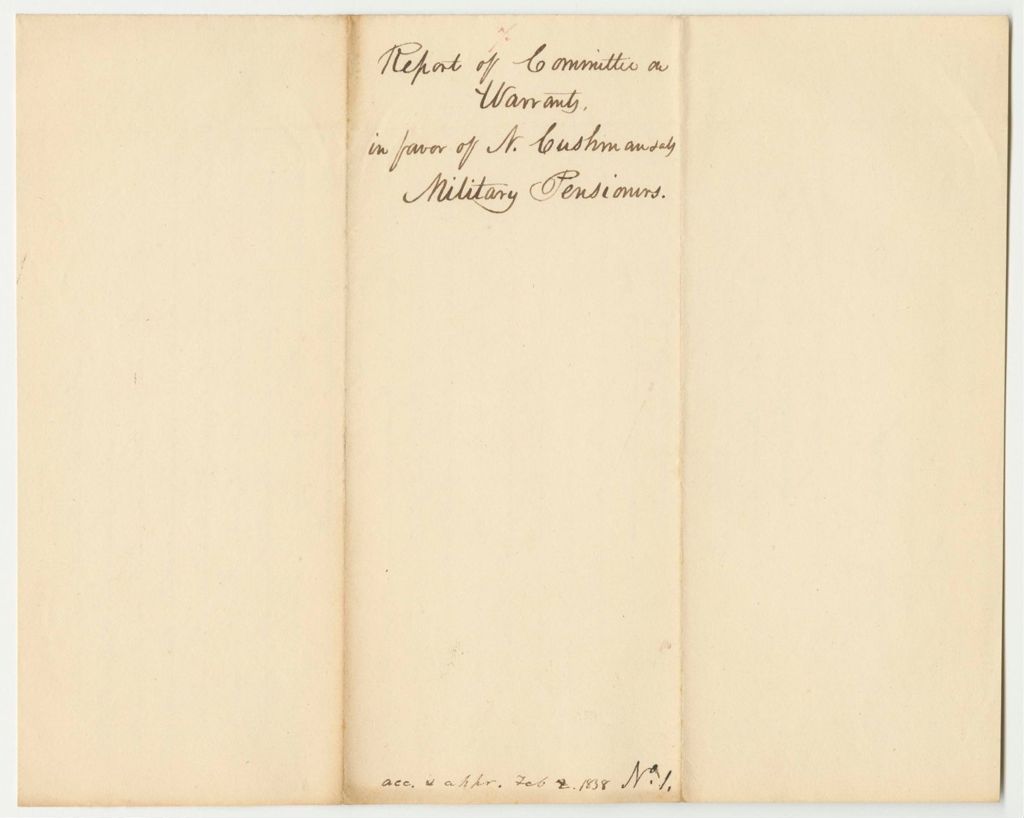 Report of Committee on
Warrants,
in favor of N. Cushman & als
Military Pensioners.
acc. & appr. Feb 2. 1838 No. 1.